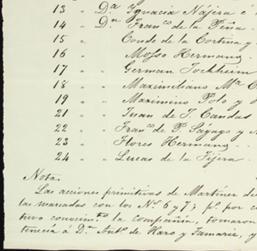 13 " Da Ignacia Najera é
14 " Dn Franco de la Peña
15 " Conde de la Cortina y
16 " Mosso Hermanos
17 " German
18 " Maximiliano Ma
19 " Maximino Polo y
21 " Juan de
22 " Franco de P. Sayago y
23 " Flores Hermano
24 " Lucas de la Tijera
Nota.
Las acciones primitivas de Martinez del
las marcadas con los Nos 6 y 7; po por
tuvo la compañia, tomaron
tenecia á Dn Anto de Haro y Tamariz, y